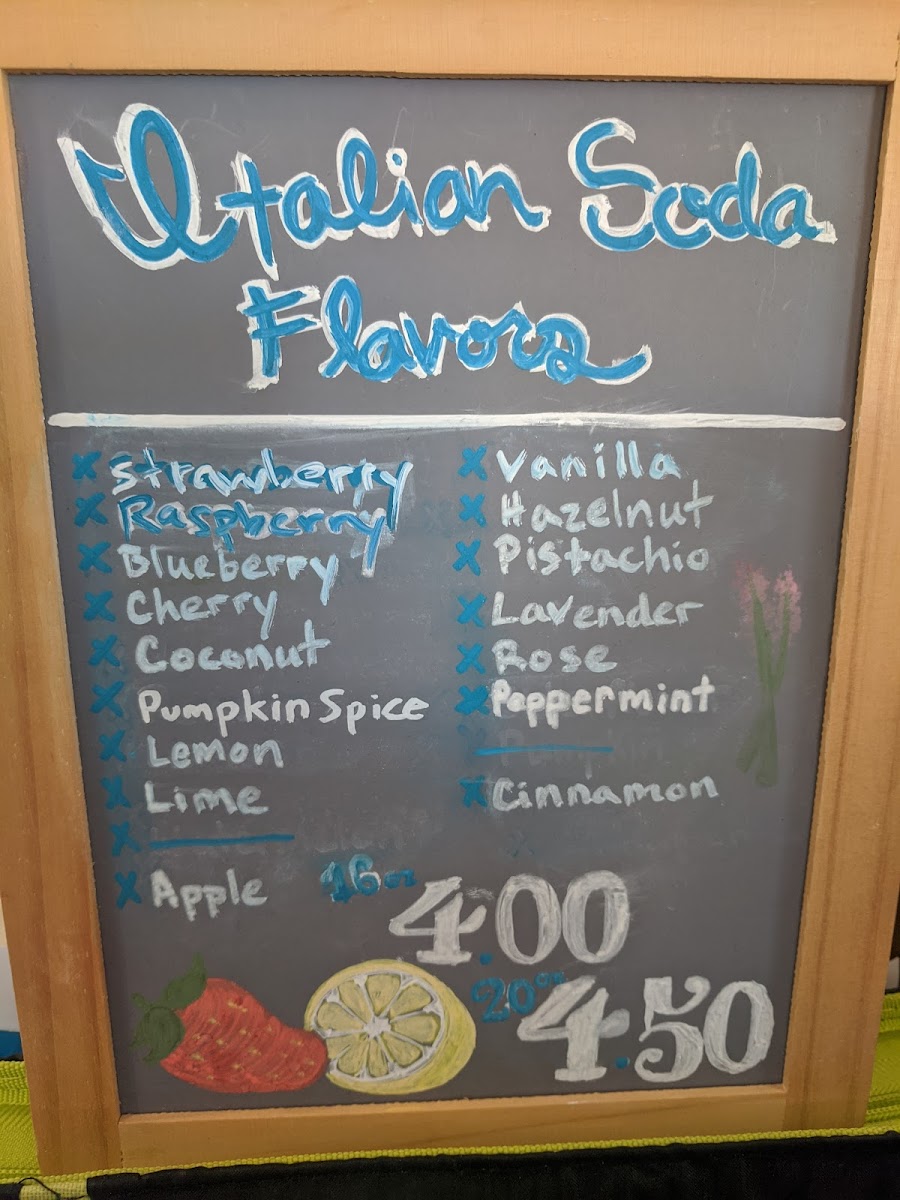 Italian Soda
Flavors
x Strawberry
x Raspberry
x Blueberry
x Cherry
x Coconut
x Pumpkin Spice
x Lemon
x Lime
x
x Apple
x Vanilla
x Hazelnut
x Pistachio
x Lavender
x Rose
x Peppermint
x Cinnamon
16oz 4.00
20oz 4.50